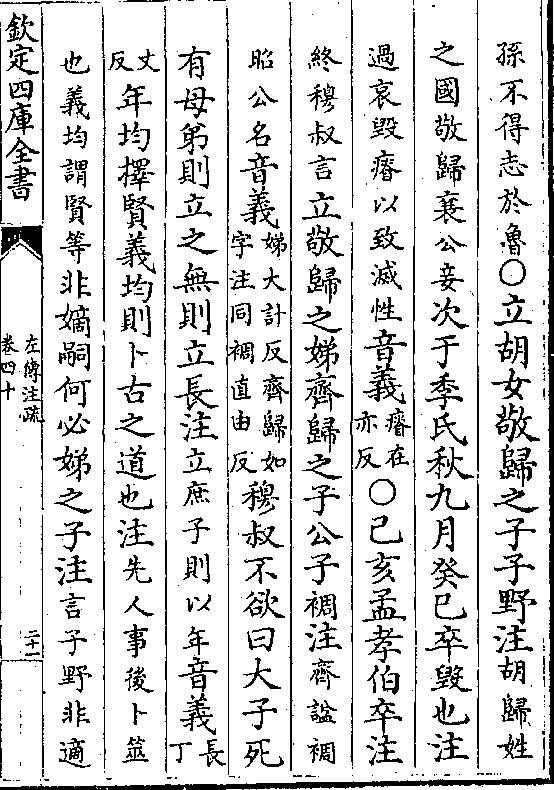 孫不得志於魯○立胡女敬歸之子子野注胡歸姓
之國敬歸襄公妾次于季氏秋九月癸巳卒毀也注
過哀毀瘠以致滅性音義瘠在亦反○己亥孟孝伯卒注
終穆叔言立敬歸之娣齊歸之子公子裯注齊諡裯
昭公名音義娣大計反齊歸如字注同裯直由反穆叔不欲曰大子死
有母弟則立之無則立長注立庶子則以年音義長丁
丈反年均擇賢義均則卜古之道也注先人事後卜筮
也義均謂賢等非嫡嗣何必娣之子注言子野非適
欽定四庫全書
左傳注疏
卷四十
二十一